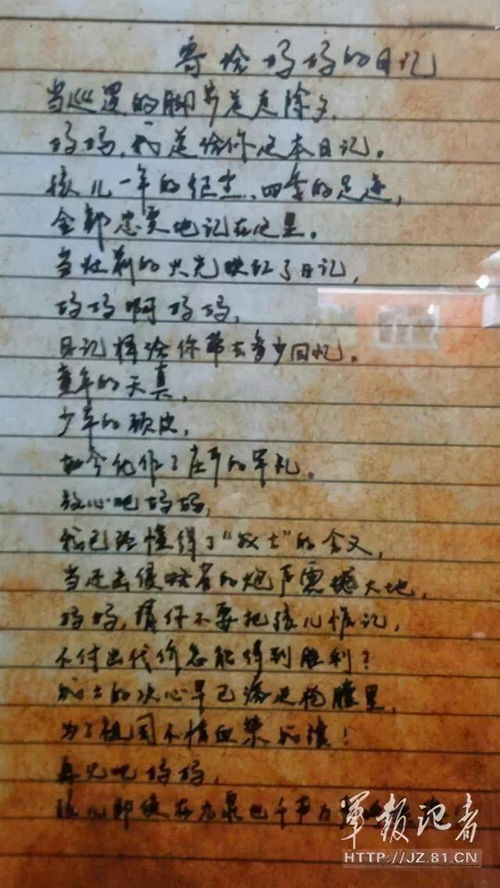 寄给妈妈的日记
当巡逻的脚步走走除夕,
妈妈,我送给你这本日记。
孩儿一年的征尘、四季的足迹,
全部忠实地记在这里。
当灶前的火光映红了日记,
妈妈啊妈妈,
日记将给你带去多少回忆。
童年的天真,
少年的顽皮,
如今化作了庄严的军礼。
放心吧妈妈,
我已经懂得了“战士”的含义,
当还击侵略者的炮声震撼大地,
妈妈,请你不要把孩儿惦记,
不付出代价怎能得到胜利?
战士的决心早已落进枪膛里,
为了祖国不惜血染战旗!
再见吧妈妈,
孩儿即使在九泉也千声万
軍報记者
HTTP://JZ.81.CN